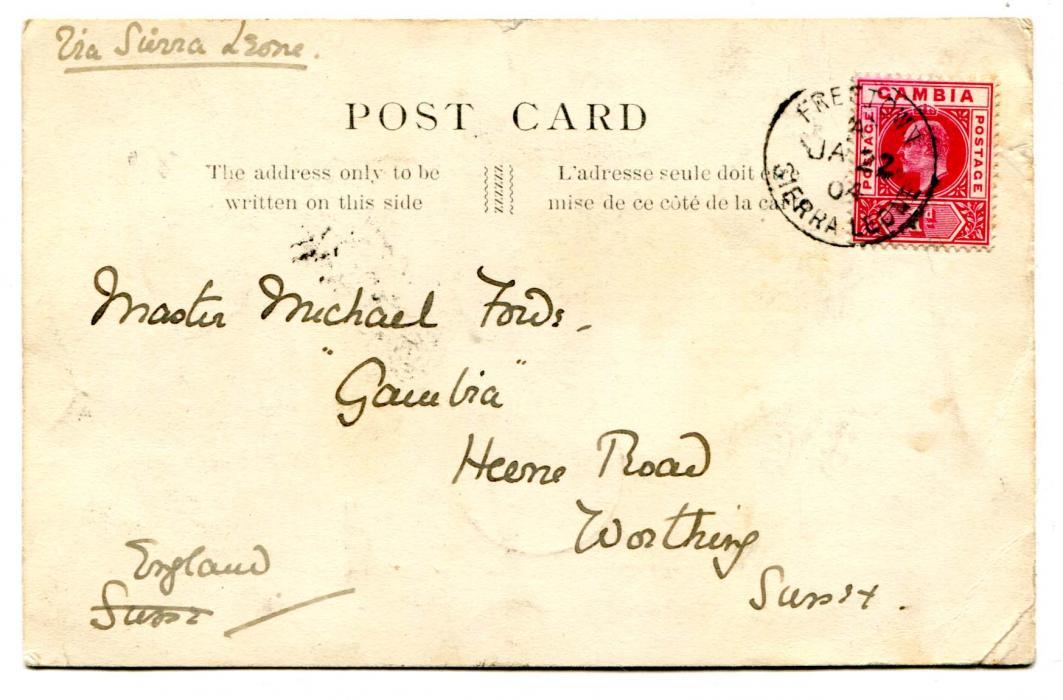 Via Sierra Leone.
POST CARD
The address only to be
written on this side
L'adresse seule doit
mise de ce côté de la
GAMBIA
POSTAGE
POSTAGE
1d
FREETOWN
A
JA 22
04
SIERRA-LEONE
Master Michael
"Gambia"
Heene Road
Worthing
Sussex.
England